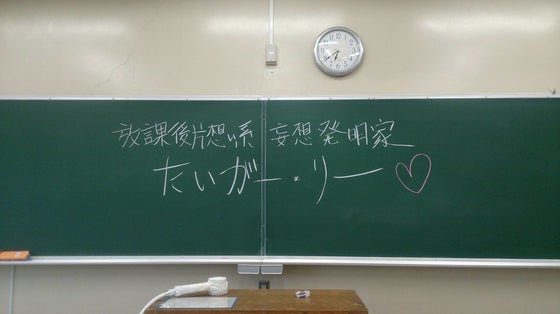 放課後片想い系 妄想発明家
たいがー・りー♡